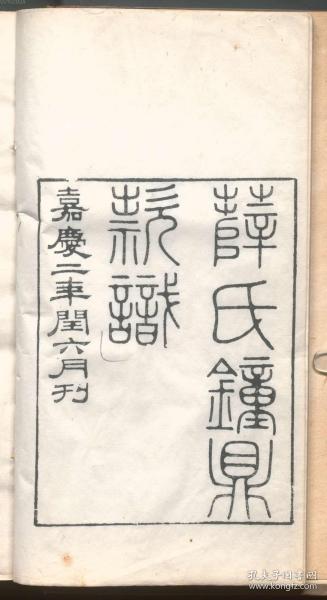 薛氏鐘鼎
款識
嘉慶二年閏六月刊
孔夫子旧书网